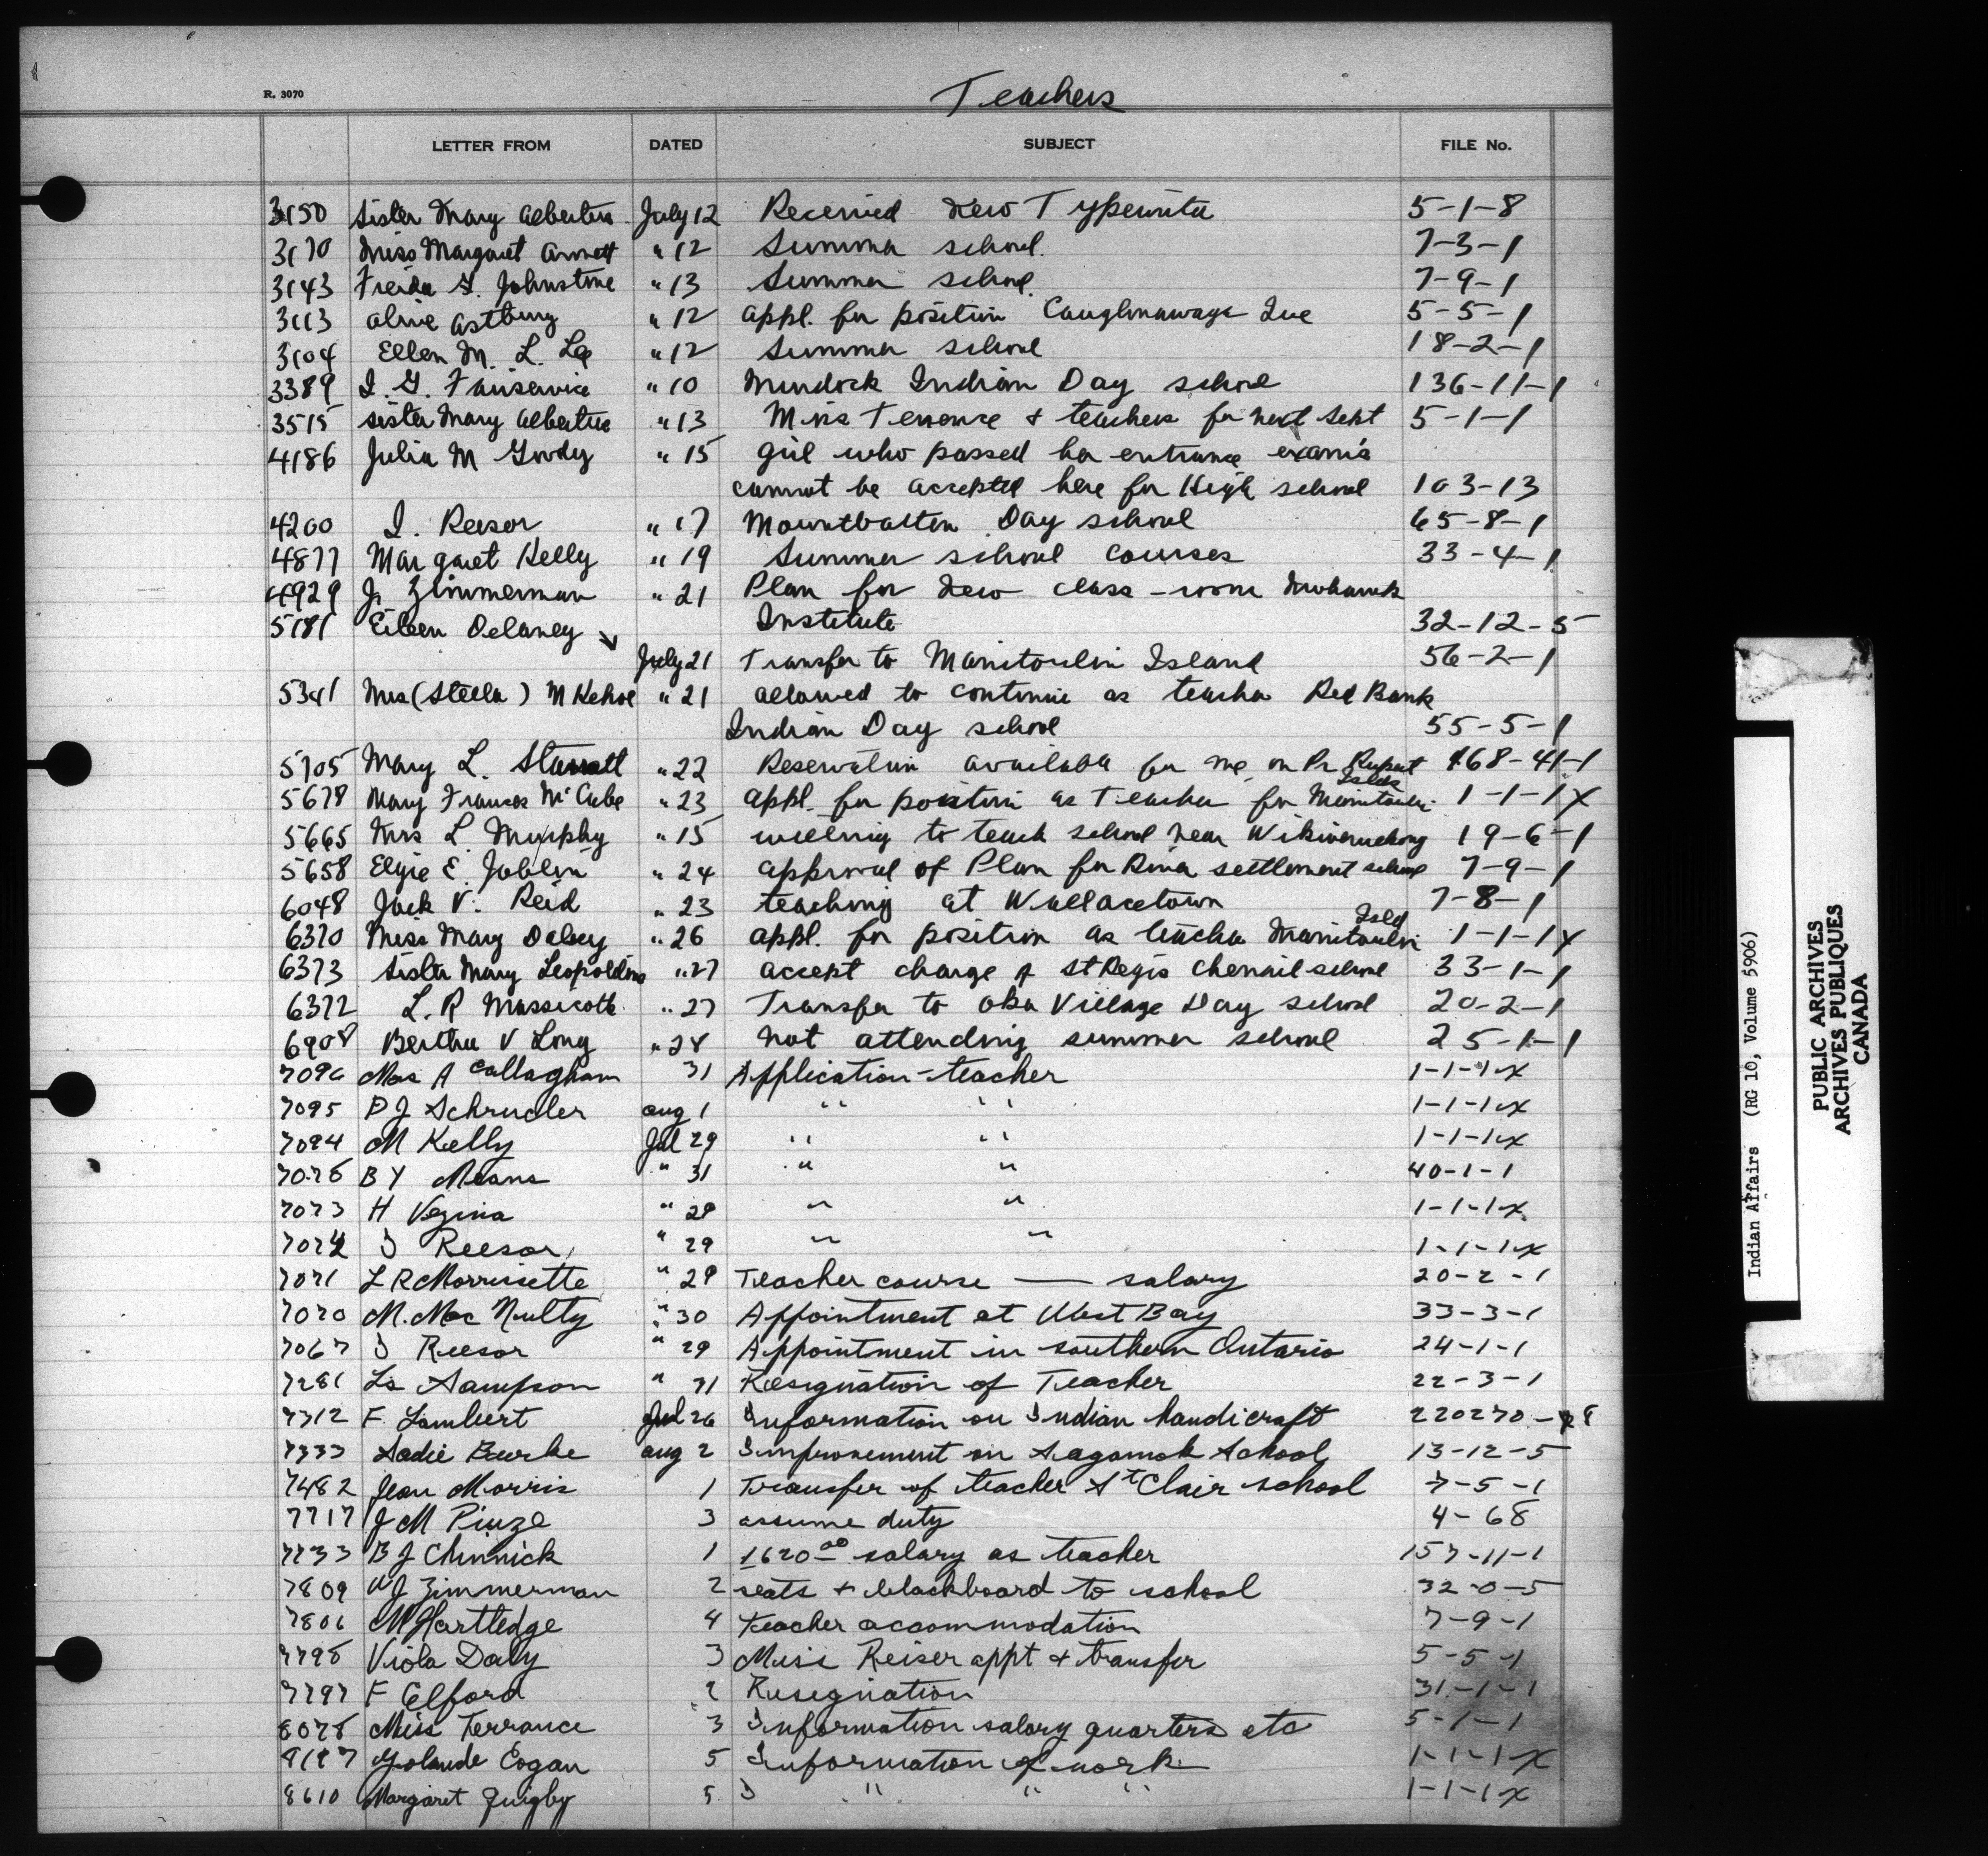 R. 3070
Teachers
LETTER FROM DATED SUBJECT FILE No.
3150 Sister Mary Albertus July 12 Received New Typewriter 5-1-8
3170 Miss Margaret Arnott " 12 Summer school. 7-3-1
3143 Freida G. Johnstone " 13 Summer school. 7-9-1
3113 Olive Astbury " 12 appl. for position Caughnawaga Que 5-5-1
3104 Ellen M. L. Lee " 12 Summer school 18-2-1
3389 I. G. " 10 Murdock Indian Day school 136-11-1
3515 Sister Mary Albertus " 13 Miss Terrence + teachers for next Sept 5-1-1
4186 Julia M Goody " 15 girl who passed her entrance exams
cannot be accepted here for High school 103-13
4200 I. Reesor " 17 Mountbatten Day school 65-8-1
4877 Margaret Kelly " 19 Summer school courses 33-4-1
4929 J. Zimmerman " 21 Plan for New class-room Mohawk
5181 Eileen Delaney Institute 32-12-5
July 21 Transfer to Manitoulin Island 56-2-1
5341 Mrs (Stella) M Kehoe " 21 allowed to continue as teacher Red Bank
Indian Day school 55-5-1
5705 Mary L. " 22 Reservation available for me on Pr Rupert 168-41-1
5678 Mary Frances McCabe " 23 appl. for position as Teacher for Manitoulin Islds 1-1-1x
5665 Mrs L. Murphy " 15 willing to teach school near Wikwemikong 19-6-1
5658 Elgie E. Joblin " 24 approval of Plan for River settlement school 7-9-1
6048 Jack V. Reid " 23 teaching at Wallacetown 7-8-1
6370 Miss Mary Dalsey " 26 appl. for position as teacher Manitoulin Isld 1-1-1x
6373 Sister Mary Leopoldina " 27 accept charge of St Regis Chenail school 33-1-1
6372 L. R Massicotte " 27 Transfer to Oka Village Day school 20-2-1
6908 Bertha V Long " 28 not attending summer school 25-1-1
7096 Mrs A Callagham 31 Application-teacher 1-1-1-x
7095 P J Schrudler aug 1 " " 1-1-1-x
7094 M Kelly Jul 29 " " 1-1-1-x
7076 B Y Means " 31 " " 40-1-1
7073 H Vezina " 29 " " 1-1-1-x
7074 I Reesor " 29 " " 1-1-1-x
7071 L R Morrisette " 29 Teacher course — salary 20-2-1
7070 M. Mac Nulty " 30 Appointment at West Bay 33-3-1
7067 I Reesor " 29 Appointment in southern Ontario 24-1-1
7281 Ls Sampson " 31 Resignation of Teacher 22-3-1
7312 F. Lambert Jul 26 Information on Indian handicraft 220270-
7333 Sadie Burke aug 2 Improvement on Sagamok School 13-12-5
7482 Jean Morris 1 Transfer of teacher St Clair school 7-5-1
7717 J M Piuze 3 assume duty 4-68
7733 B J Chinnick 1 1620.00 salary as teacher 157-11-1
7809 W J Zimmerman 2 seats + blackboard to school 32-0-5
7806 M Hartledge 4 Teacher accommodation 7-9-1
7798 Viola Daly 3 Miss Reiser appt + transfer 5-5-1
7797 F Elford 2 Resignation 31-1-1
8078 Miss Terrance 3 Information salary quarters etc 5-1-1
8187 Yolande Cogan 5 Information of work 1-1-1-x
8610 Margaret Quigby 5 I " " " 1-1-1-x
Indian Affairs (RG 10, Volume 5906)
PUBLIC ARCHIVES
ARCHIVES PUBLIQUES
CANADA